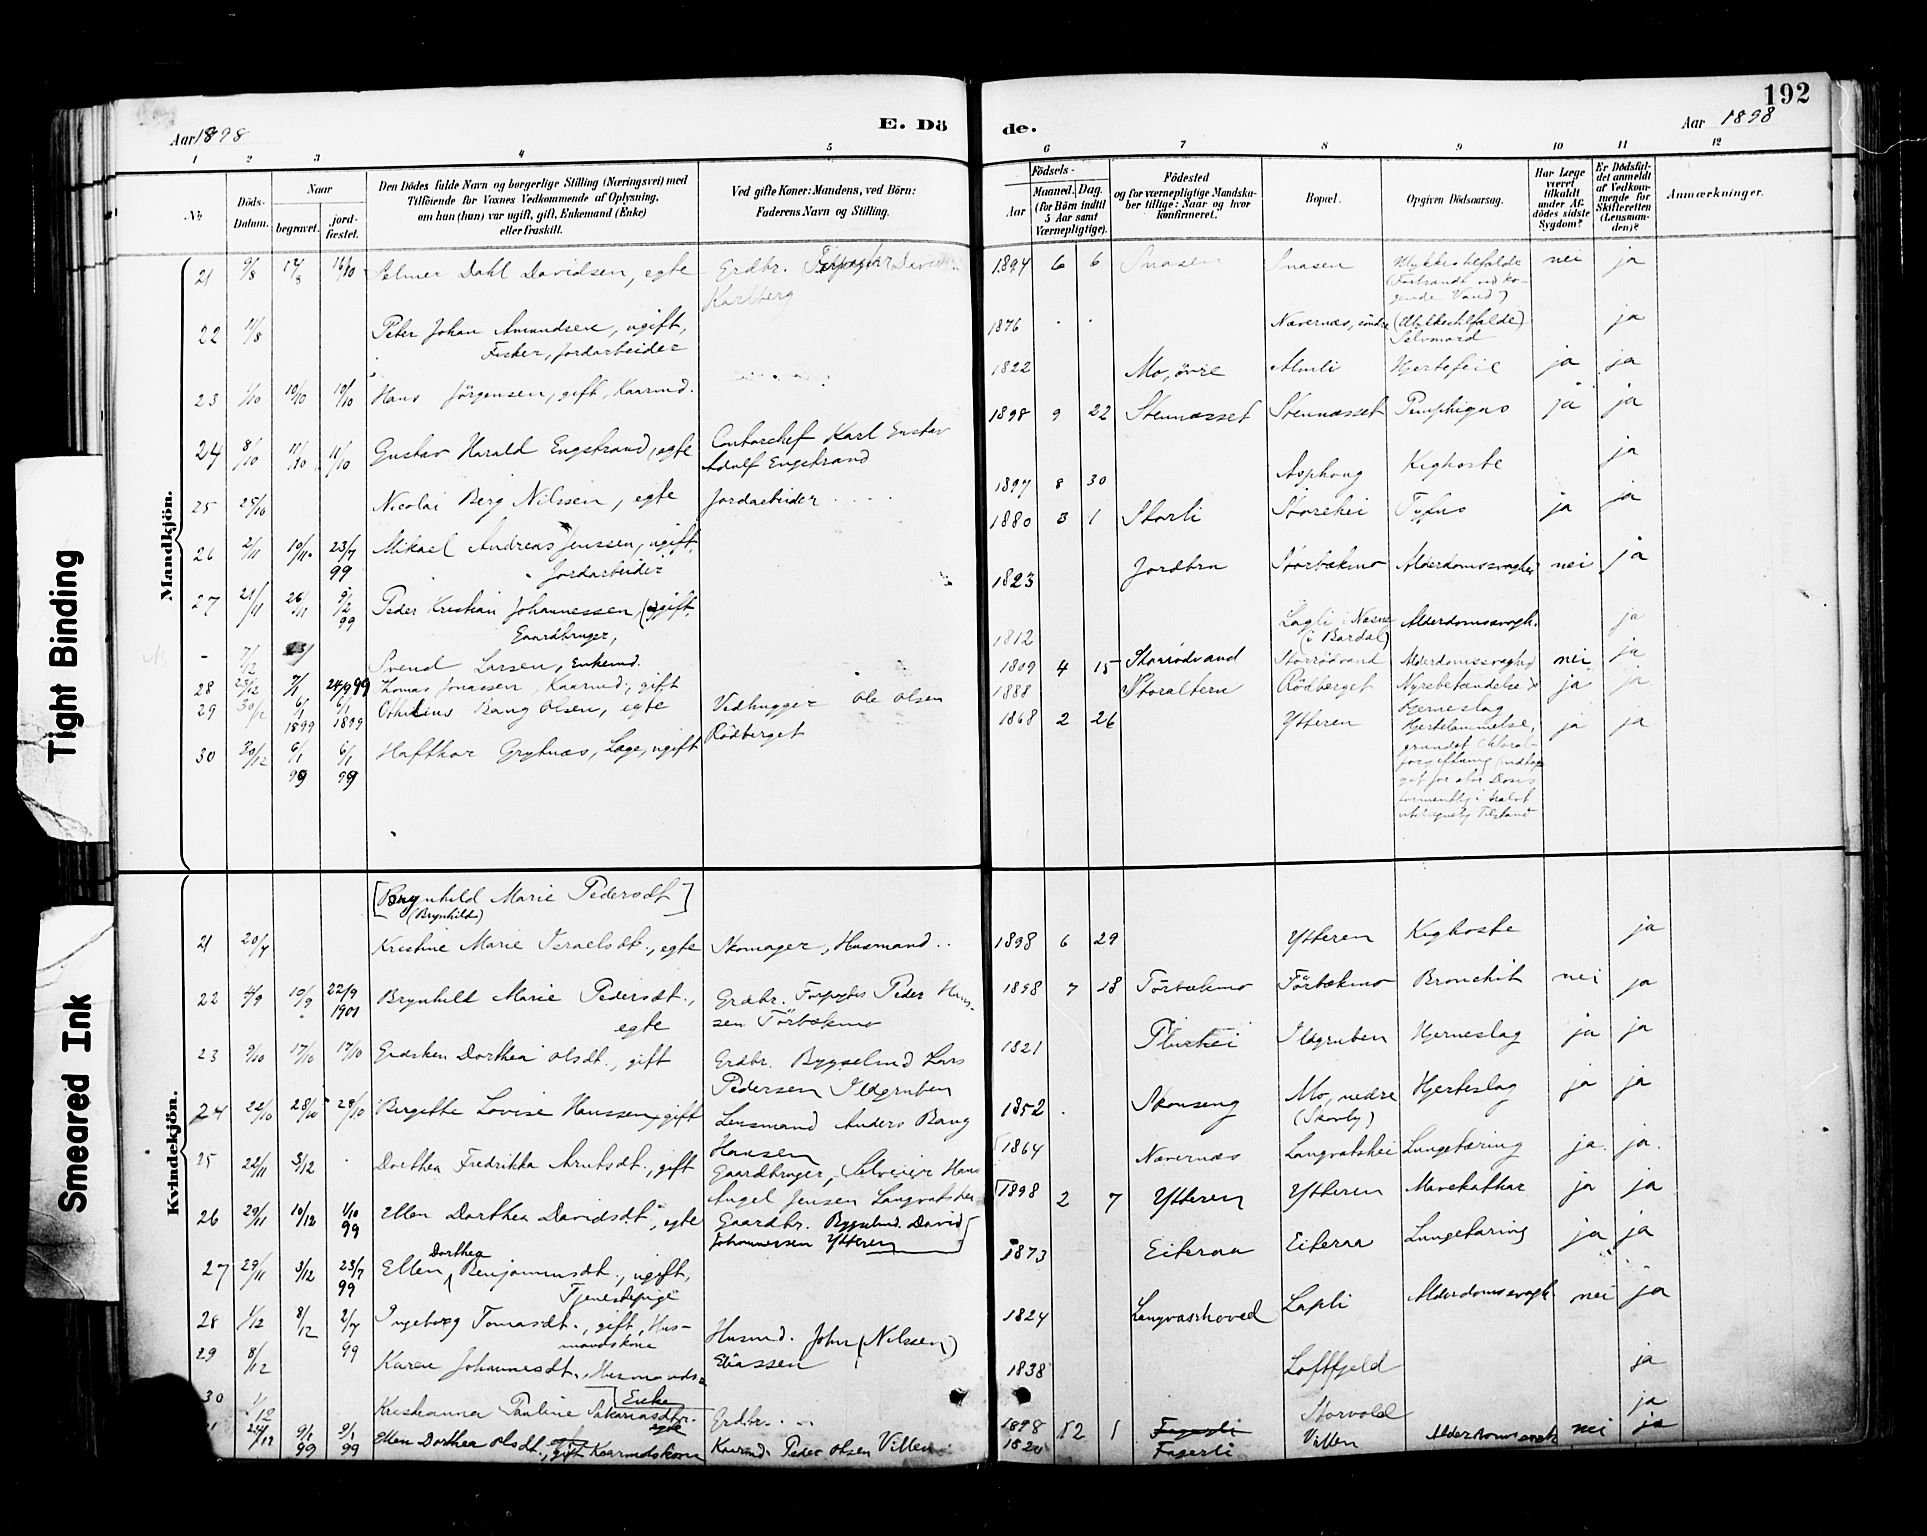 192
Aar 1898
E. Döde.
Aar 1898
1 2 3 4 5 6 7 8 9 10 11 12
No
Döds-Datum.
Naar
begravet.
jord-fæstet.
Den Dödes fulde Navn og borgerlige Stilling (Næringsvei) med
Tilföiende for Voxnes Vedkommende af Oplysning,
om han (hun) var ugift, gift, Enkemand (Enke)
eller fraskilt.
Ved gifte Koner: Mandens, ved Börn:
Faderens Navn og Stilling.
Födsels-
Aar
Maaned. Dag.
(for Börn indtil
5 Aar samt
Værnepligtige).
Födested
og for værnepligtige Mandska-
ber tillige: Naar og hvor
konfirmeret.
Bopæl.
Opgiven Dödsaarsag.
Har Læge
været
tilkaldt
under Af-
dödes sidste
Sygdom?
Er Dödsfal-
det anmeldt
af Vedkom-
mende for
Skifteretten
(Lensman-
den)?
Anmærkninger.
Mandkjön.
21 9/8 14/8 16/10 Elmer Dahl Davidsen, egte Grdbr. Forpagter
Karlberg 1894 6 6 Snasen Snasen Ulykkestilfælde nei ja
(Forbrændt ved ko-
gende Vand)
22 11/8 Peter Johan Amundsen, ugift,
Fisker, Jordarbeider 1876 Nævernæs, söndre (Ulykkestilfælde) ja
Selvmord
23 1/10 10/10 10/10 Hans Jörgensen, gift, Kaarmd. 1822 Mo, övre Almli Hjertefeil ja ja
24 8/10 11/10 11/10 Gustav Harald Engstrand, egte Contorchef Karl Gustav
Adolf Engstrand 1898 9 22 Stennæsset Stennæsset Pemphigus ja ja
25 25/10 Nicolai Berg Nilssen, egte Jordarbeider 1897 8 30 Asphaug Kighoste ja
26 2/11 10/11 23/7 99 Mikael Andreas Jenssen, ugift,
Jordarbeider 1880 3 1 Storli Storehei Tyfus ja ja
27 21/11 26/11 9/2 99 Peder Kristian Johannessen, (u)gift,
Gaardbruger, 1823 Jordbru Storbækmo Alderdomssvaghed nei ja
- 7/12 Svend Larsen, Enkemd. 1812 Lagli i Næsne
(i Bardal) Alderdomssvagh. ja
28 23/12 7/1 24/9 99 Thomas Jonassen, Kaarmd., gift 1809 4 15 Storrödvand Storrödvand Alderdomssvaghed nei ja
29 30/12 6/1 1899 6/1 1899 Othilius Bang Olsen, egte Vedhugger Ole Olsen
Rödberget 1888 Storaltern Rödberget Nyrebetændelse ja ja
Hjerneslag
30 30/12 6/1 99 6/1 99 Hafthor Grytnæs, Læge, ugift 1868 2 26 Ytteren Hjertelammelse, ja ja
grundet Chloral-
forgiftning
Tilstand
Kvindekjön.
[Brynhild Marie Pedersdt]
(Brynhilda)
21 20/7 Kristine Marie Israelsdt., egte Skomager, Husmand .. 1898 6 29 Ytteren Kighoste ja
22 4/9 10/9 22/9 1901 Brynhild Marie Pedersdt.,
egte Grdbr. Forpagter Peder Hans-
sen Törbækmo 1898 7 18 Törbækmo Törbækmo Bronchit nei ja
23 9/10 17/10 17/10 Grdsken Dorthea Olsdt., gift Grdbr. Bygselmd Lars
Pedersen Ildgruben 1821 Plurhei Ildgruben Hjerneslag ja ja
24 22/10 28/10 28/10 Birgitte Lovise Hanssen, gift Lensmand Anders Bang
Hansen 1852 Skonseng Mo, nedre
(Skarby) Hjerteslag ja ja
25 22/11 3/12 Dorthea Fredrikka Arntsdt., gift Gaardbruger, Selveier Hans
Angel Jensen Langvatshei 1864 Nævernæs Langvatshei Lungetæring ja ja
26 29/11 10/12 1/10 99 Ellen Dorthea Davidsdt., egte Gaardbr. Bygselmd. David
Johannessen Ytteren 1898 2 7 Ytteren Ytteren Mavekathar ja ja
27 29/11 3/12 23/7 99 Ellen Dorthea Benjaminsdt., ugift,
Tjenestepige 1873 Eiteraa Eiteraa Lungetæring ja ja
28 1/12 8/12 2/7 99 Ingeborg Tomasdt., gift, Hus-
mandskone Husmd. John (Nilssen)
Eliassen 1824 Langvashoved Lapli Alderdomssvagh nei ja
29 8/12 Karen Johannesdt., Husmands-
Enke 1838 Loftfjeld ja
30 1/12 Kristianna Pauline Sakariasdtr.
egte Grdbr. 1898 12 1 Storvold ja
31 24/12 9/1 99 9/1 99 Ellen Dorthea Olsdt., gift Kaarmdskone Kaarmd. Peder Olsen Villen 1820 Fagerli Villen Alderdomssvagh nei ja
Tight Binding
Smeared Ink